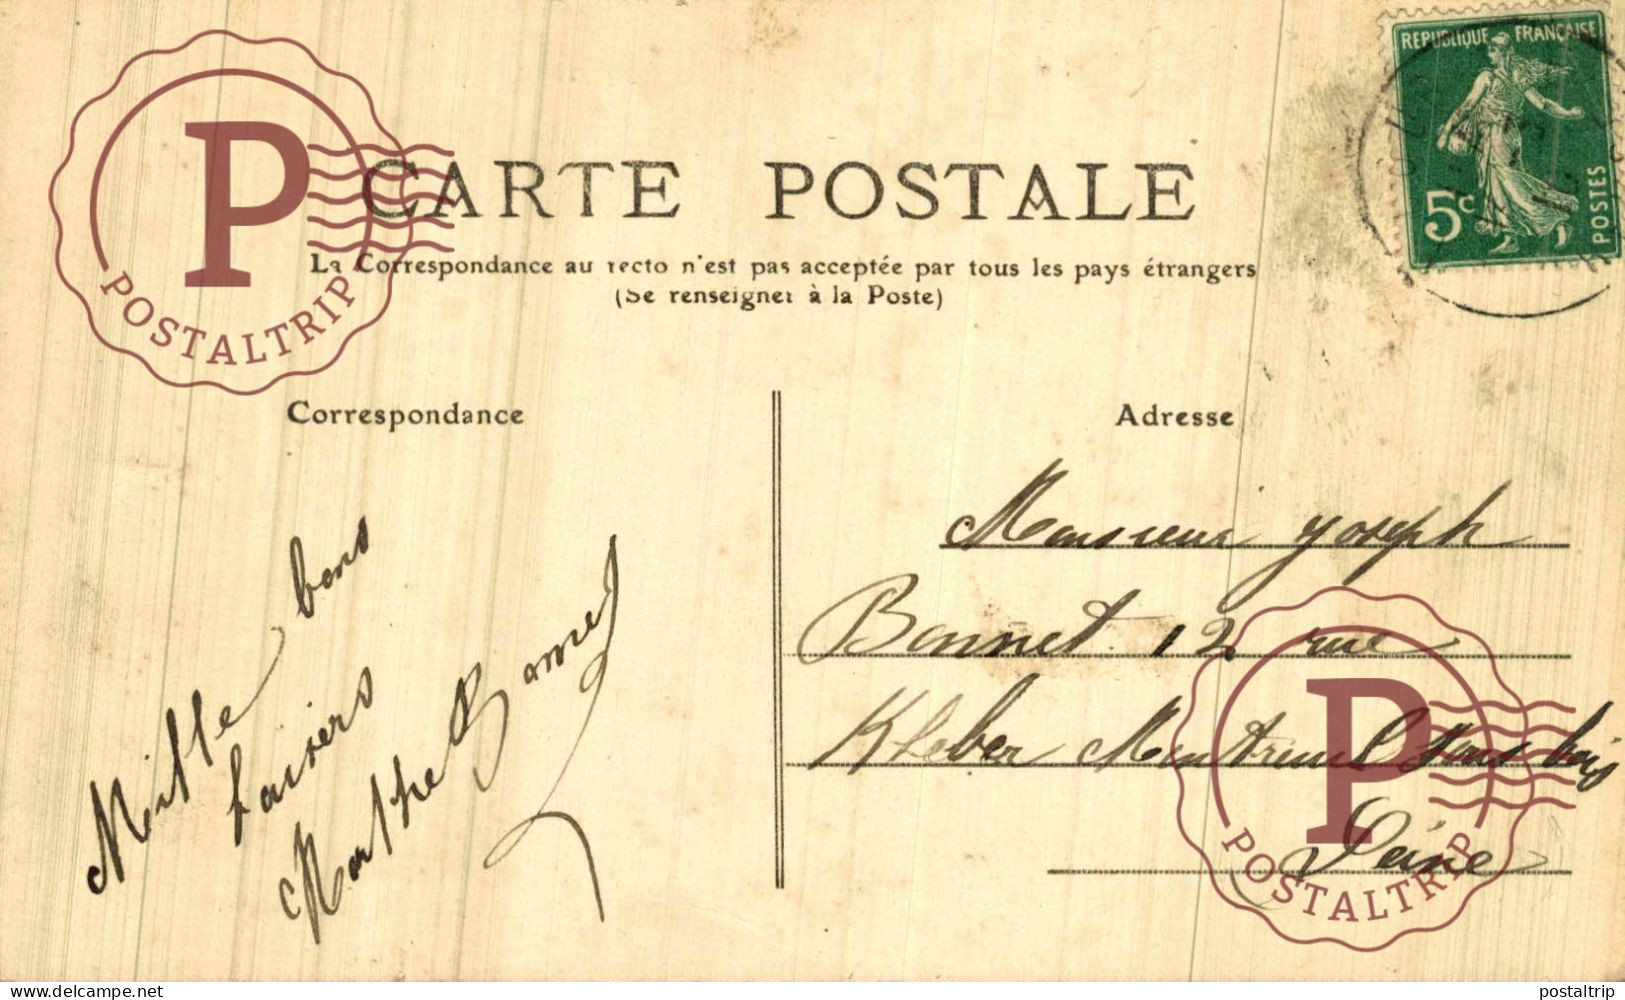 REPUBLIQUE FRANÇAISE
5c
POSTES
P
POSTALTRIP
CARTE POSTALE
La Correspondance au recto n'est pas acceptée par tous les pays étrangers
(Se renseigner à la Poste)
Correspondance
Mille bons
baisers
Marthe Bonnet
Adresse
Monsieur Joseph
Bonnet 12 rue
Kleber Montreuil sous bois
Seine
P
POSTALTRIP
www.delcampe.net
postaltrip